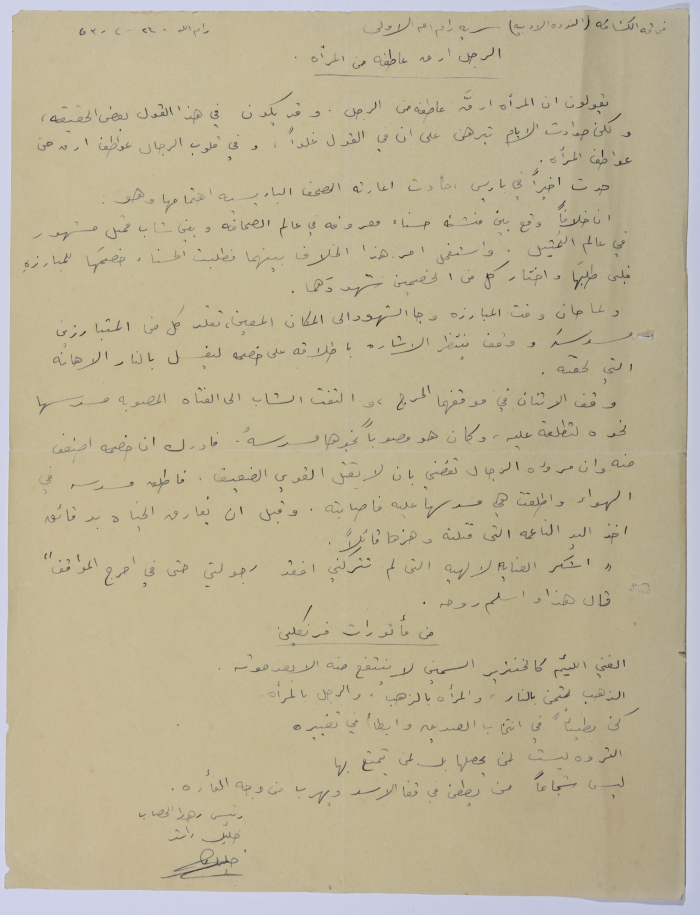 فرقة الكشافه (الندوه الادبيه) سريه رام الله الاولى رام الله - ٢٦ - ٢ - ٥٣
الرجل ارق عاطفه من المرأه .
يقولون ان المرأه ارقّ عاطفه من الرجل . و قد يكون في هذا القول بعض الحقيقه ،
ولكن حوادث الايام تبرهن على ان في القول غلواً ، و في قلوب الرجال عواطف ارق من
عواطف المرأه .
حدث اخيراً في باريس ، حادث اعارته الصحف الباريسيه اهتمامها وهو :
ان خلافاً وقع بين منشئه حسناء معروفه في عالم الصحافه و بين شاب ممثل مشهور
في عالم التمثيل . واستفحل امر هذا الخلاف بينهما فطلبت الحسناء خصمَها للمبارزه
فلبى طلبَها واختار كل من الخصمين شهودَهما .
ولما حان وقت المبارزه وجا الشهود الى المكان المعين ، تقلد كل من المتبارزين
مسدسهَ و وقف ينتظر الاشاره باطلاقه على خصمه ليغسل بالنار الاهانه
التي لحقته .
وقف الاثنان في موقفهما الحرج ، و التفت الشاب الى الفتاه المصوبه مسدسها
نحوه لتطلقه عليه ، وكان هو مصوباً نحوها مسدسهُ . فادرك ان خصمه اضعف
منه وان مروءه الرجال تقضي بان لا يقتل القوي الضعيف . فاطلق مسدسه في
الهواء واطلقت هي مسدسها عليه فاصابته . وقبل ان يفارق الحياه بدقائق
اخذ اليد الناعمه التي قتلته وهزها قائلاً .
" اشكر العنايه الالهيه التي لم تتركني افقد رجولتي حتى في احرج المواقف "
قال هذا و اسلم روحه .
من مأثورات فرنكلين
الغني اللئيم كالخنزير السمين لا ينتفع منه الا بعد موته .
الذهب يمتحن بالنار ، والمرأه بالذهب ، والرجل بالمرأه .
كن بطيئاً في انتخاب الصديق و ابطأ في تغييره
الثروه ليست لمن يحصلها بل لمن يتمتع بها
ليس شجاعاً من يطعن في قفا الاسد ويهرب من وجه الفأره .
رئيس رهط
خليل راشد
خليل